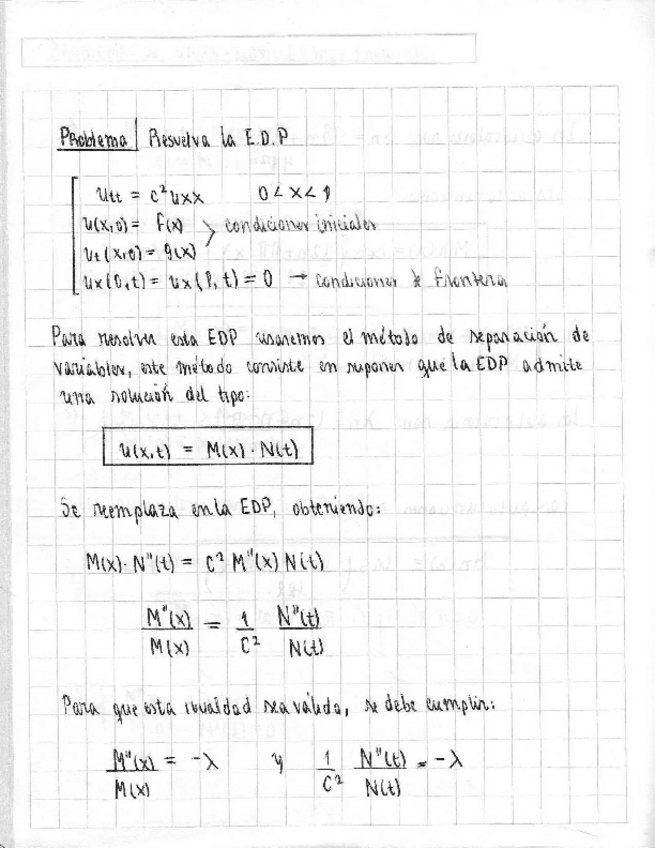 Problema Resuelva la E.D.P
utt = c²uxx 0 < x < l
u(x,0) = f(x) > condiciones iniciales
ut(x,0) = g(x)
ux(0,t) = ux(l,t) = 0 → condiciones de frontera
Para resolver esta EDP usaremos el método de separación de
variables, este método consiste en suponer que la EDP admite
una solución del tipo:
u(x,t) = M(x) · N(t)
Se reemplaza en la EDP, obteniendo:
M(x) · N''(t) = C² M''(x) N(t)
M''(x)/M(x) = 1/C² N''(t)/N(t)
Para que esta igualdad sea válida, se debe cumplir:
M''(x)/M(x) = -λ y 1/C² N''(t)/N(t) = -λ